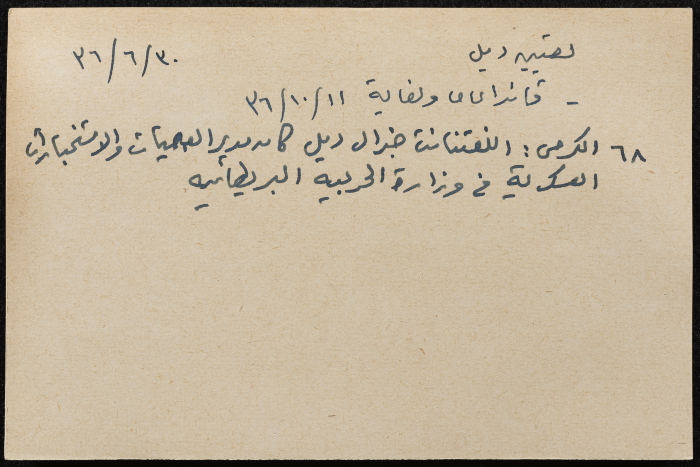 تعيين ديل ٣٠/٦/٣٦
- قائدا عاما ولغاية ١١/١٠/٣٦
٦٨ الكرمي: اللفتنانت جنرال ديل كان مدير العمليات والاستخبارات
العسكرية في وزارة الحربية البريطانية